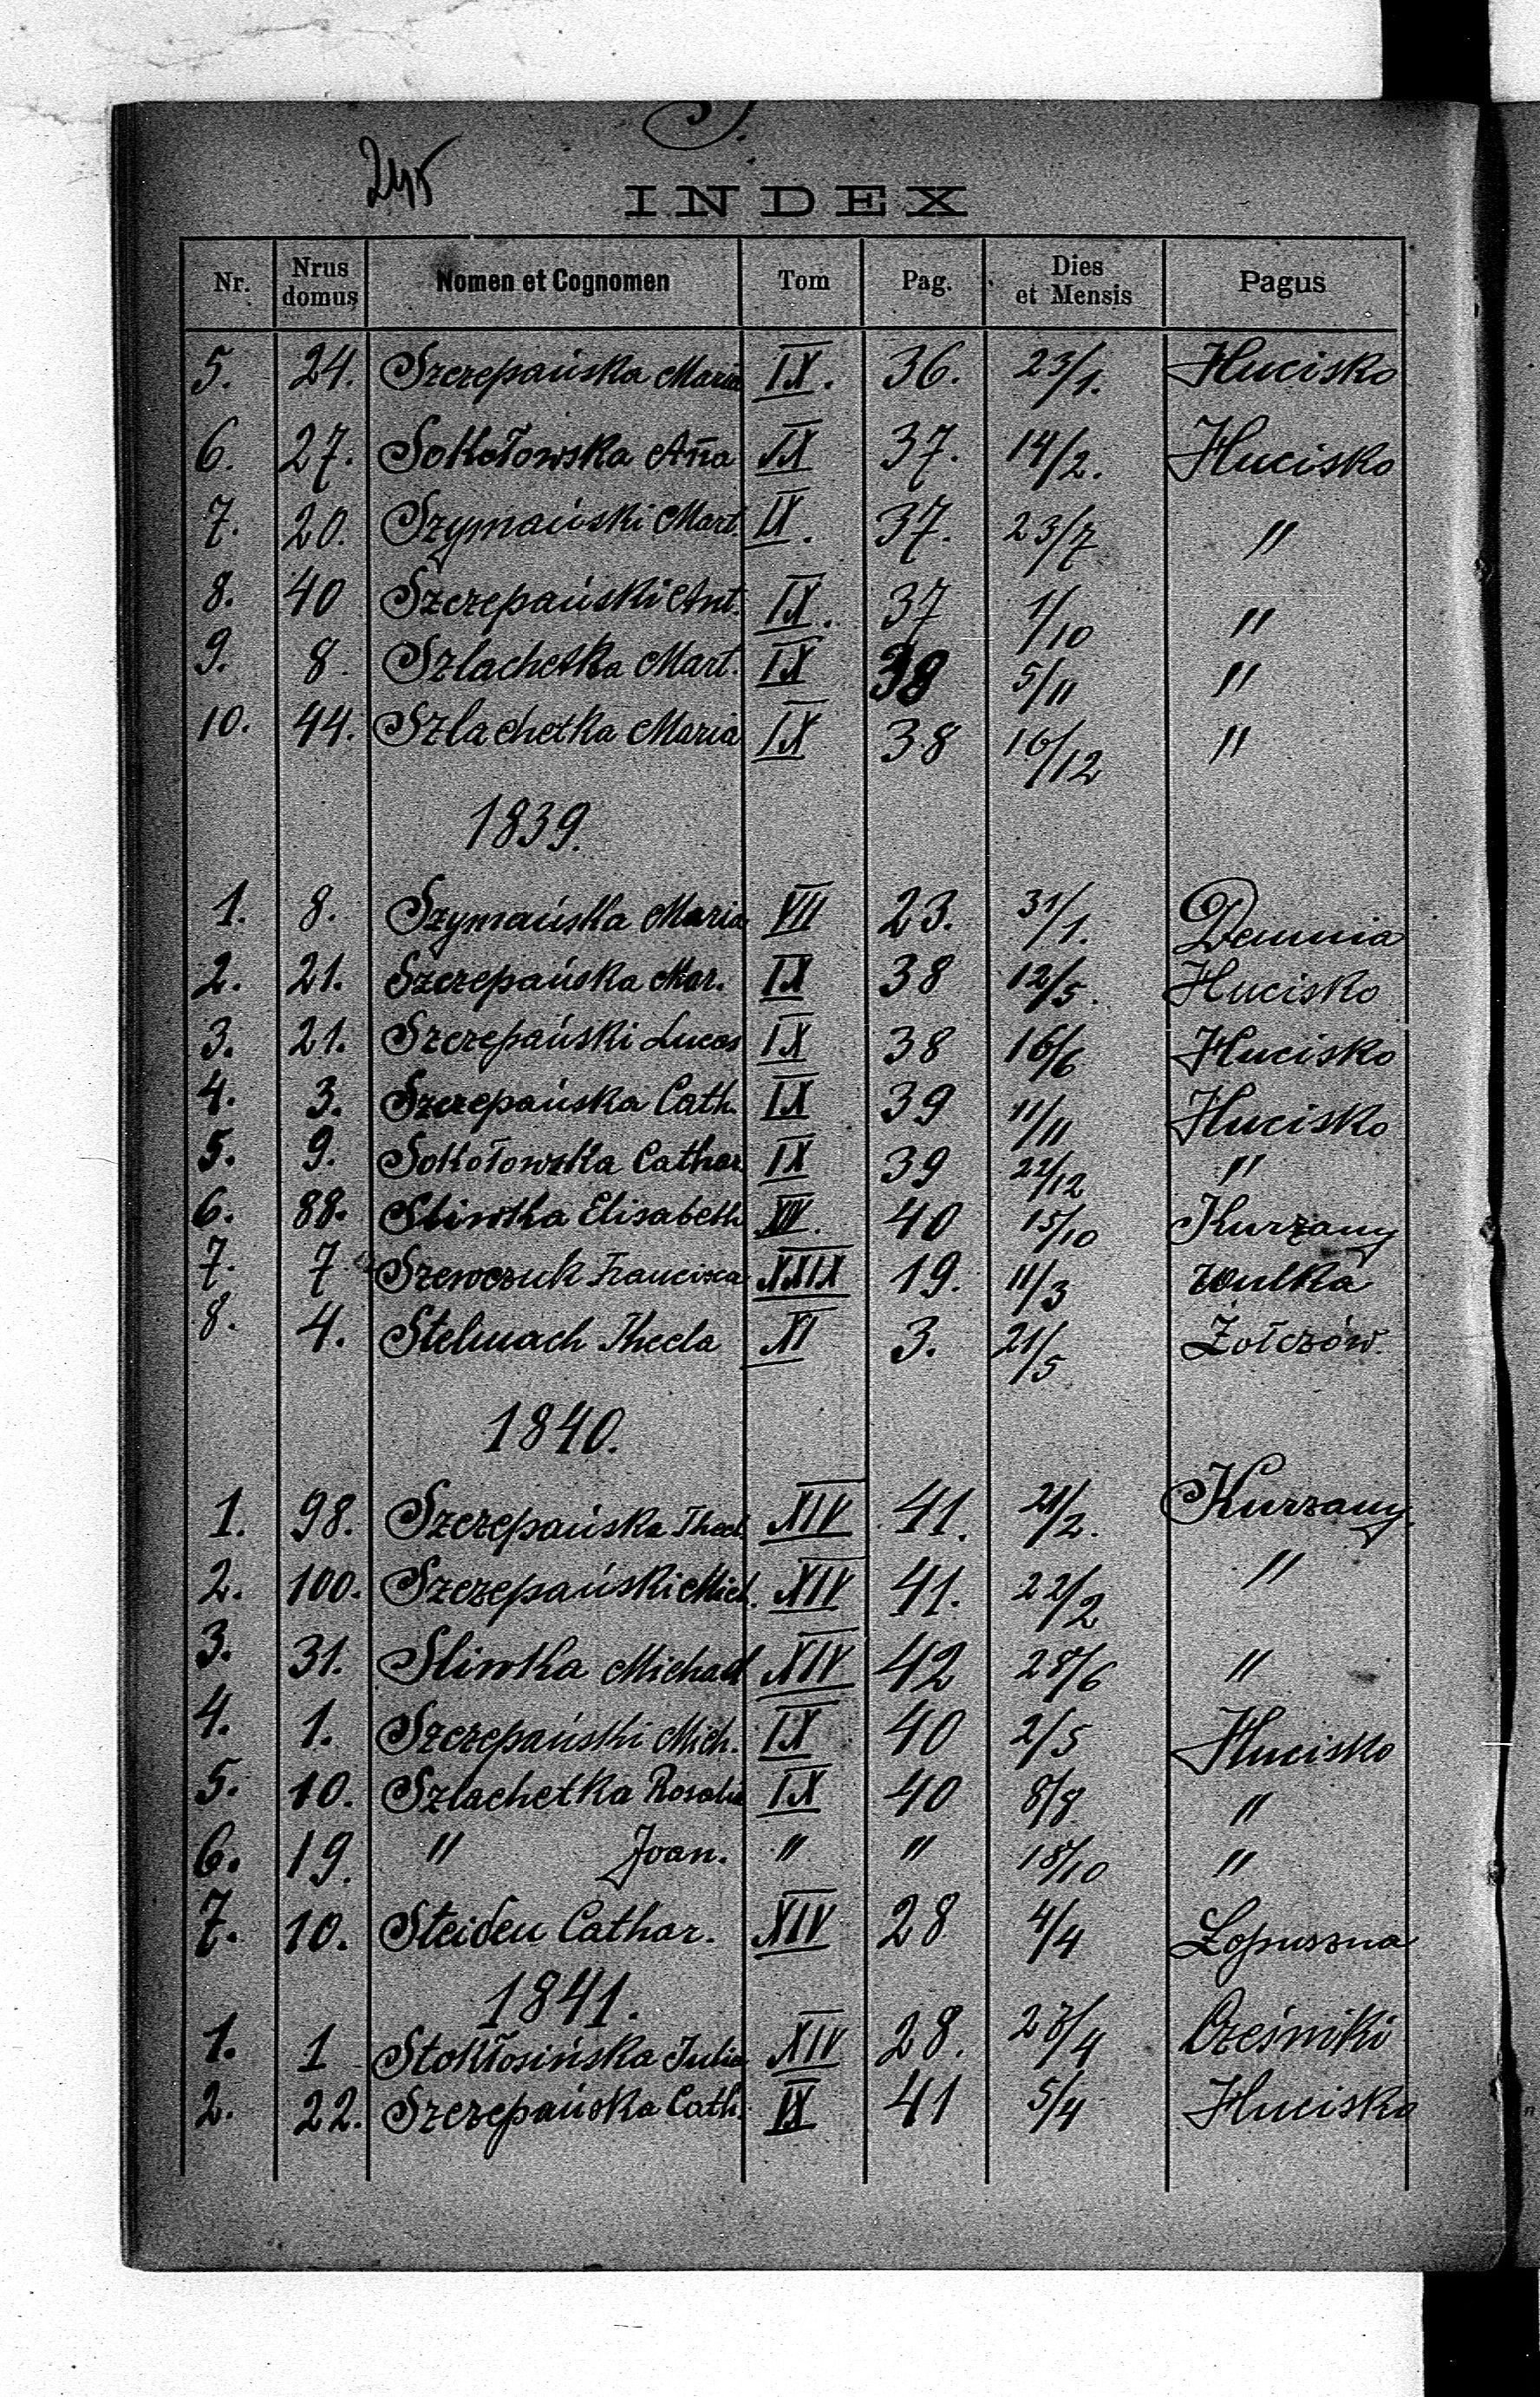 S.
245
INDEX
Nr. Nrus domus Nomen et Cognomen Tom Pag. Dies et Mensis Pagus
5. 24. Szczepańska Maria IX. 36. 23/1. Hucisko
6. 27. Sokołowska Aña IX 37. 14/2. Hucisko
7. 20. Szymański Mart. IX. 37. 23/7 "
8. 40 Szczepański Ant. IX. 37 1/10 "
9. 8 Szlachetka Mart. IX 38 5/11 "
10. 44. Szlachetka Maria IX 38 16/12 "
1839.
1. 8. Szymańska Maria VII 23. 31/1. Demnia
2. 21. Szczepańska Mar. IX 38 12/5. Hucisko
3. 21. Szczepański Lucas IX 38 16/6 Hucisko
4. 3. Szczepańska Cath. IX 39 11/11 Hucisko
5. 9. Sokołowska Cathar. IX 39 22/12 "
6. 88. Sliwka Elisabeth XIV. 40 15/10 Kurzany
7. 7 Szewczuk Francisca XXIX 19. 11/3 Wulka
8. 4. Stelmach Thecla XI 3. 21/5 Żołczów.
1840.
1. 98. Szczepańska Thecl. XIV 41. 21/2. Kurzany.
2. 100. Szczepański Mich. XIV 41. 22/2 "
3. 31. Sliwka Michael XIV 42 28/6 "
4. 1. Szczepański Mich. IX 40 2/5 Hucisko
5. 10. Szlachetka Rosalia IX 40 8/8 "
6. 19. " Joan. " " 18/10 "
7. 10. Steiden Cathar. XIV 28 4/4 Łopuszna
1841.
1. 1 Stokłosińska Julia XIV 28. 28/4 Cześniki
2. 22. Szczepańska Cath. IX 41 5/4 Hucisko